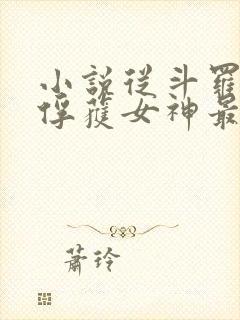 小說從斗羅
俘獲女神最
蕭玲